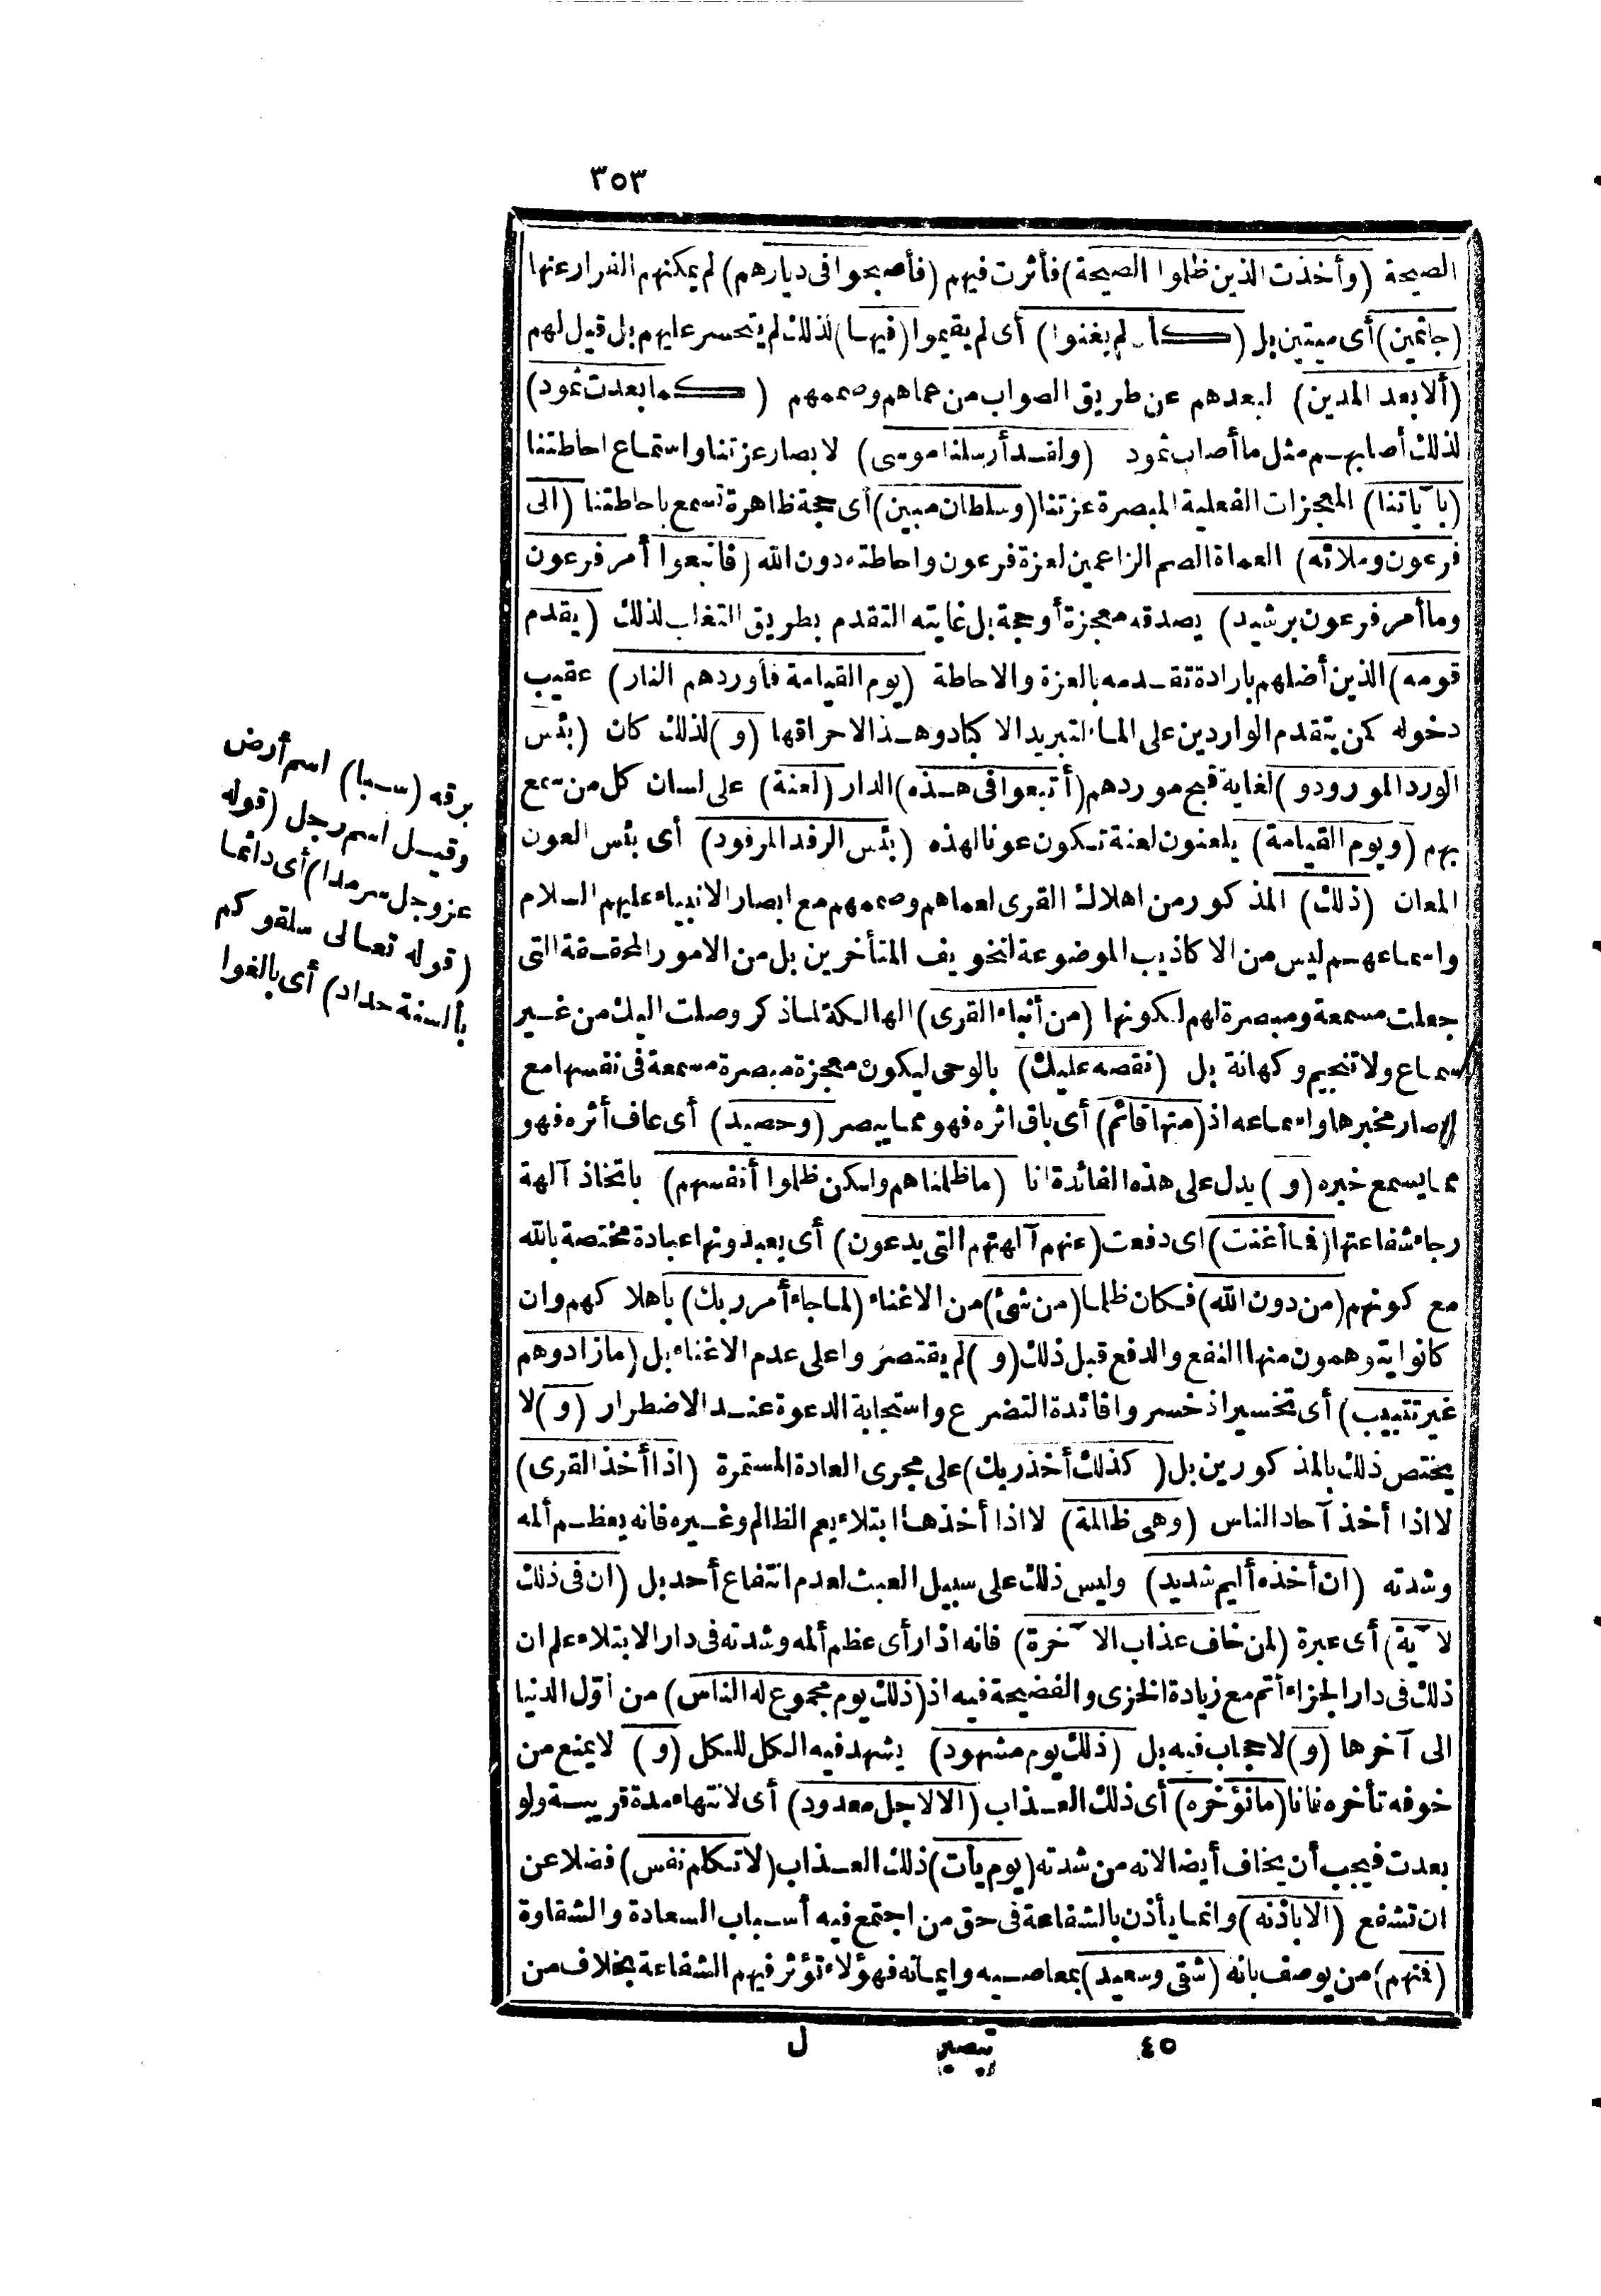 ٣٥٣
الصيحة (وأخذت الذين ظلموا الصيحة) فأثرت فيهم (فأصبحوا فى ديارهم) لم يمكنهم الفرار عنها
(جاثمين) أى ميتين بل (كأن لم يغنوا) أى لم يقيموا (فيها) لذلك لم يتحسر عليهم بل قيل لهم
(ألا بعد المدين) لبعدهم عن طريق الصواب من عماهم وصممهم (كما بعدت ثمود)
لذلك أصابهم مثل ما أصاب ثمود (ولقد أرسلنا موسى) لابصار عزتنا واستماع احاطتنا
(بآياتنا) المعجزات الفعلية المبصرة عزتنا (وسلطان مبين) أى حجة ظاهرة تسمع باحاطتنا (الى
فرعون وملائه) العماة الصم الزاعمين لعزة فرعون واحاطته دون الله (فاتبعوا أمر فرعون
وما أمر فرعون برشيد) يصدقه معجزة أو حجة بل غايته التقدم بطريق التغلب لذلك (يقدم
قومه) الذين أضلهم بارادة تقدمه بالعزة والاحاطة (يوم القيامة فأوردهم النار) عقيب
دخوله كمن يتقدم الواردين على الماء لتبريد الاكباد وهذا لاحراقها (و) لذلك كان (بئس
الورد المورود و) لغاية قبح موردهم (أتبعوا فى هذه) الدار (لعنة) على لسان كل من سمع
بهم (ويوم القيامة) يلعنون لعنة تكون عونا لهذه (بئس الرفد المرفود) أى بئس العون
المعان (ذلك) المذكور من اهلاك القرى لعماهم وصممهم مع ابصار الانبياء عليهم السلام
واسماعهم ليس من الاكاذيب الموضوعة لتخويف المتأخرين بل من الامور المحققة التى
جعلت مسمعة ومبصرة لهم لكونها (من أنباء القرى) الهالكة لماذكر وصلت اليك من غير
سماع ولا تنجيم وكهانة بل (نقصه عليك) بالوحى ليكون معجزة مبصرة مسمعة فى نفسها مع
ابصار مخبرها واسماعه اذ (منها قائم) أى باق اثره فهو مما يبصر (وحصيد) أى عاف أثره فهو
مما يسمع خبره (و) يدل على هذه الفائدة انا (ما ظلمناهم ولكن ظلموا أنفسهم) باتخاذ آلهة
رجاء شفاعتها (فما أغنت) اى دفعت (عنهم آلهتهم التى يدعون) أى يعبدونها عبادة مختصة بالله
مع كونهم (من دون الله) فكان ظلما (من شئ) من الاغناء (لما جاء أمر ربك) باهلاكهم وان
كانوا يتوهمون منها النفع والدفع قبل ذلك (و) لم يقتصروا على عدم الاغناء بل (ما زادوهم
غير تتبيب) أى تخسير اذ خسروا فائدة التضرع واستجابة الدعوة عند الاضطرار (و) لا
يختص ذلك بالمذكورين بل (كذلك أخذ ربك) على مجرى العادة المستمرة (اذا أخذ القرى)
لا اذا أخذ آحاد الناس (وهى ظالمة) لا اذا أخذها ابتلاء يعم الظالم وغيره فانه يعظم ألمه
وشدته (ان أخذه أليم شديد) وليس ذلك على سبيل العبث لعدم انتفاع أحد بل (ان فى ذلك
لآية) أى عبرة (لمن خاف عذاب الآخرة) فانه اذا رأى عظم ألمه وشدته فى دار الابتلاء علم ان
ذلك فى دار الجزاء أتم مع زيادة الخزى والفضيحة فيه اذ (ذلك يوم مجموع له الناس) من أول الدنيا
الى آخرها (و) لا حجاب فيه بل (ذلك يوم مشهود) يشهد فيه الكل للكل (و) لا يمنع من
خوفه تأخره فانا (ما نؤخره) أى ذلك العذاب (الا لاجل معدود) أى لانتهاء مدة قريبة ولو
بعدت فيجب أن يخاف أيضا لانه من شدته (يوم يأت) ذلك العذاب (لا تكلم نفس) فضلا عن
ان تشفع (الا باذنه) وانما يأذن بالشفاعة فى حق من اجتمع فيه أسباب السعادة والشقاوة
(فمنهم) من يوصف بانه (شقى وسعيد) بمعاصيه وايمانه فهؤلاء تؤثر فيهم الشفاعة بخلاف من
٤٥ تبصير ل
برقه (سبا) اسم أرض
وقيل اسم رجل (قوله
عز وجل سرمدا) أى دائما
(قوله تعالى سلقوكم
بألسنة حداد) أى بالغوا